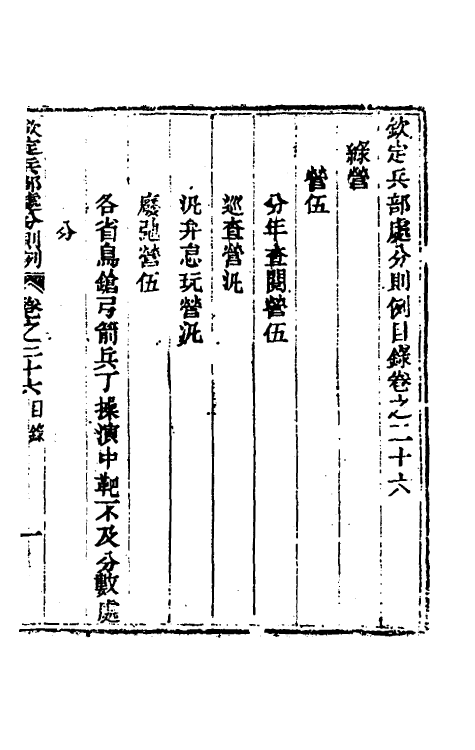 欽定兵部處分則例目錄卷之二十六
綠營
營伍
分年查閱營伍
巡查營汛
汛弁怠玩營汛
廢弛營伍
各省鳥鎗弓箭兵丁操演中靶不及分數處
分
欽定兵部處分則例 卷之二十六目錄 一